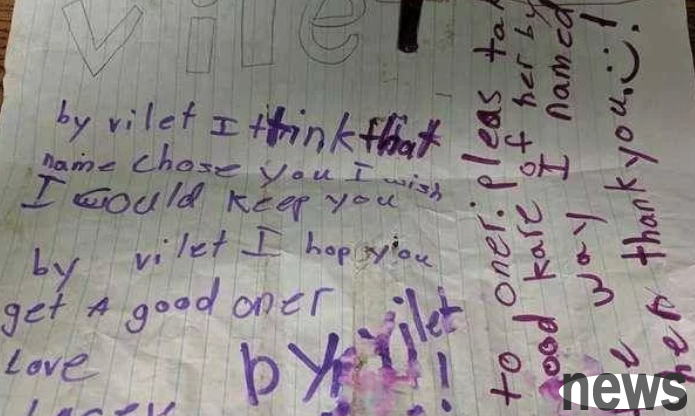 vilet
by vilet I think that
name chose you I wish
I would keep you
by vilet I hop you
get A good oner
Love
by vilet
!
to oner: pleas tak
good kare of her by
the way I named
her thank you!
news